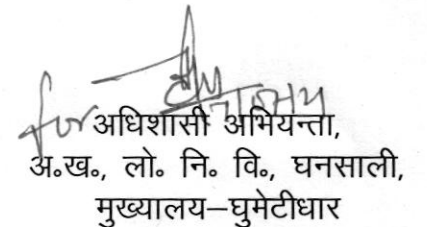 for
अधिशासी अभियन्ता,
अ०ख०, लो० नि० वि०, घनसाली,
मुख्यालय–घुमेटीधार